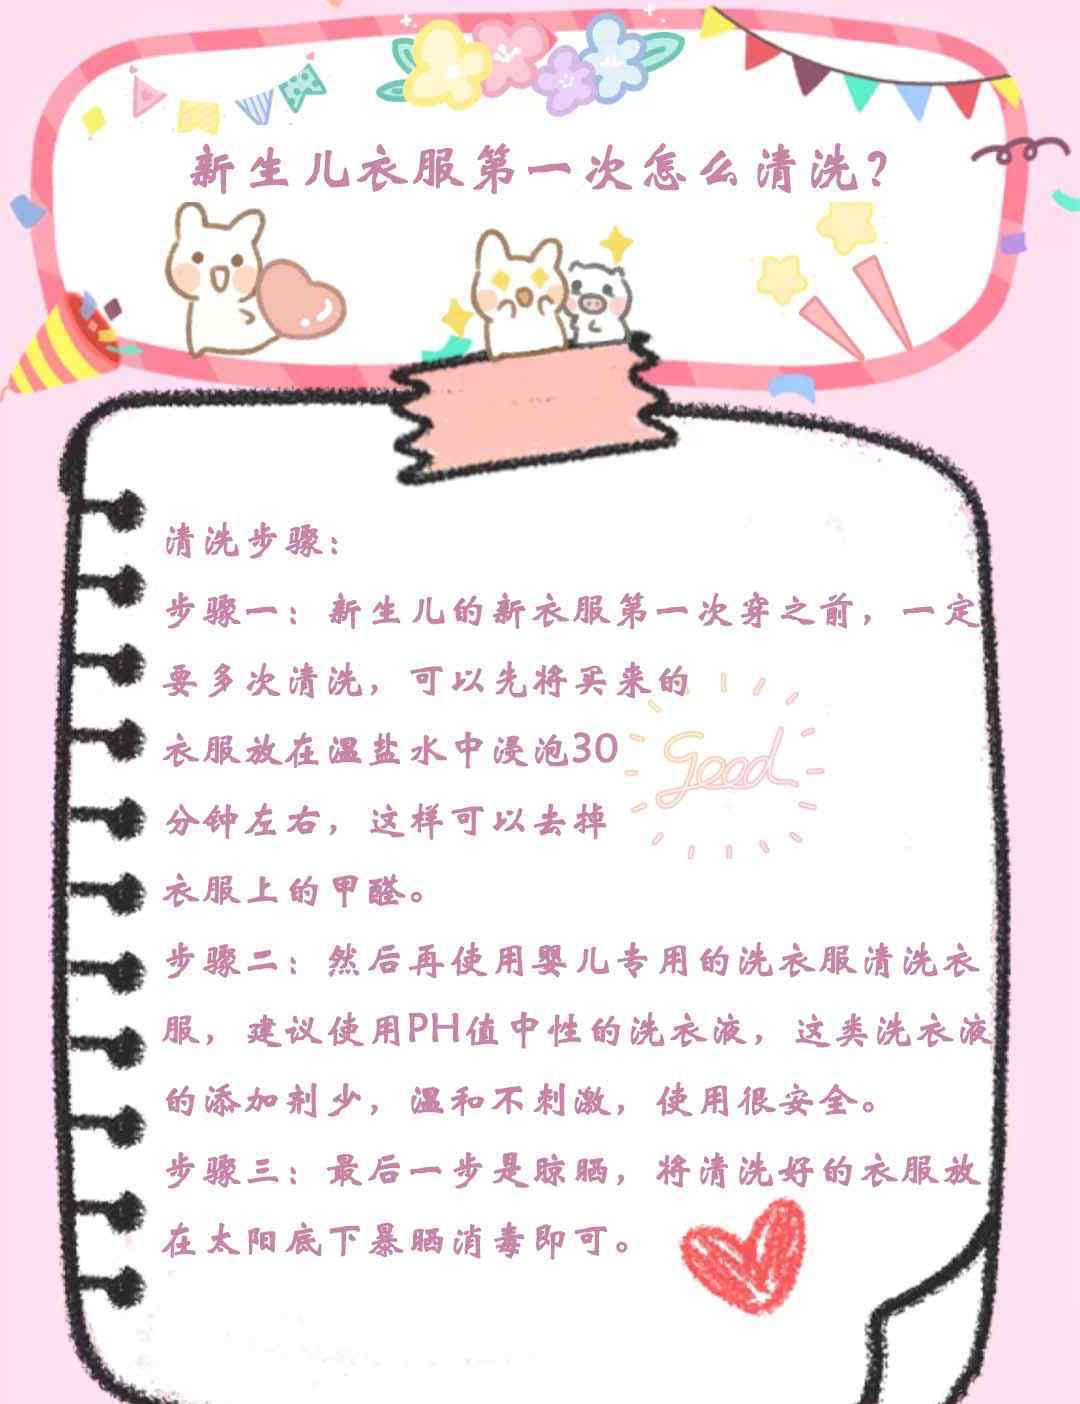 新生儿衣服第一次怎么清洗？
清洗步骤：
步骤一：新生儿的新衣服第一次穿之前，一定
要多次清洗，可以先将买来的
衣服放在温盐水中浸泡30
分钟左右，这样可以去掉
衣服上的甲醛。
Good
步骤二：然后再使用婴儿专用的洗衣服清洗衣
服，建议使用PH值中性的洗衣液，这类洗衣液
的添加剂少，温和不刺激，使用很安全。
步骤三：最后一步是晾晒，将清洗好的衣服放
在太阳底下暴晒消毒即可。